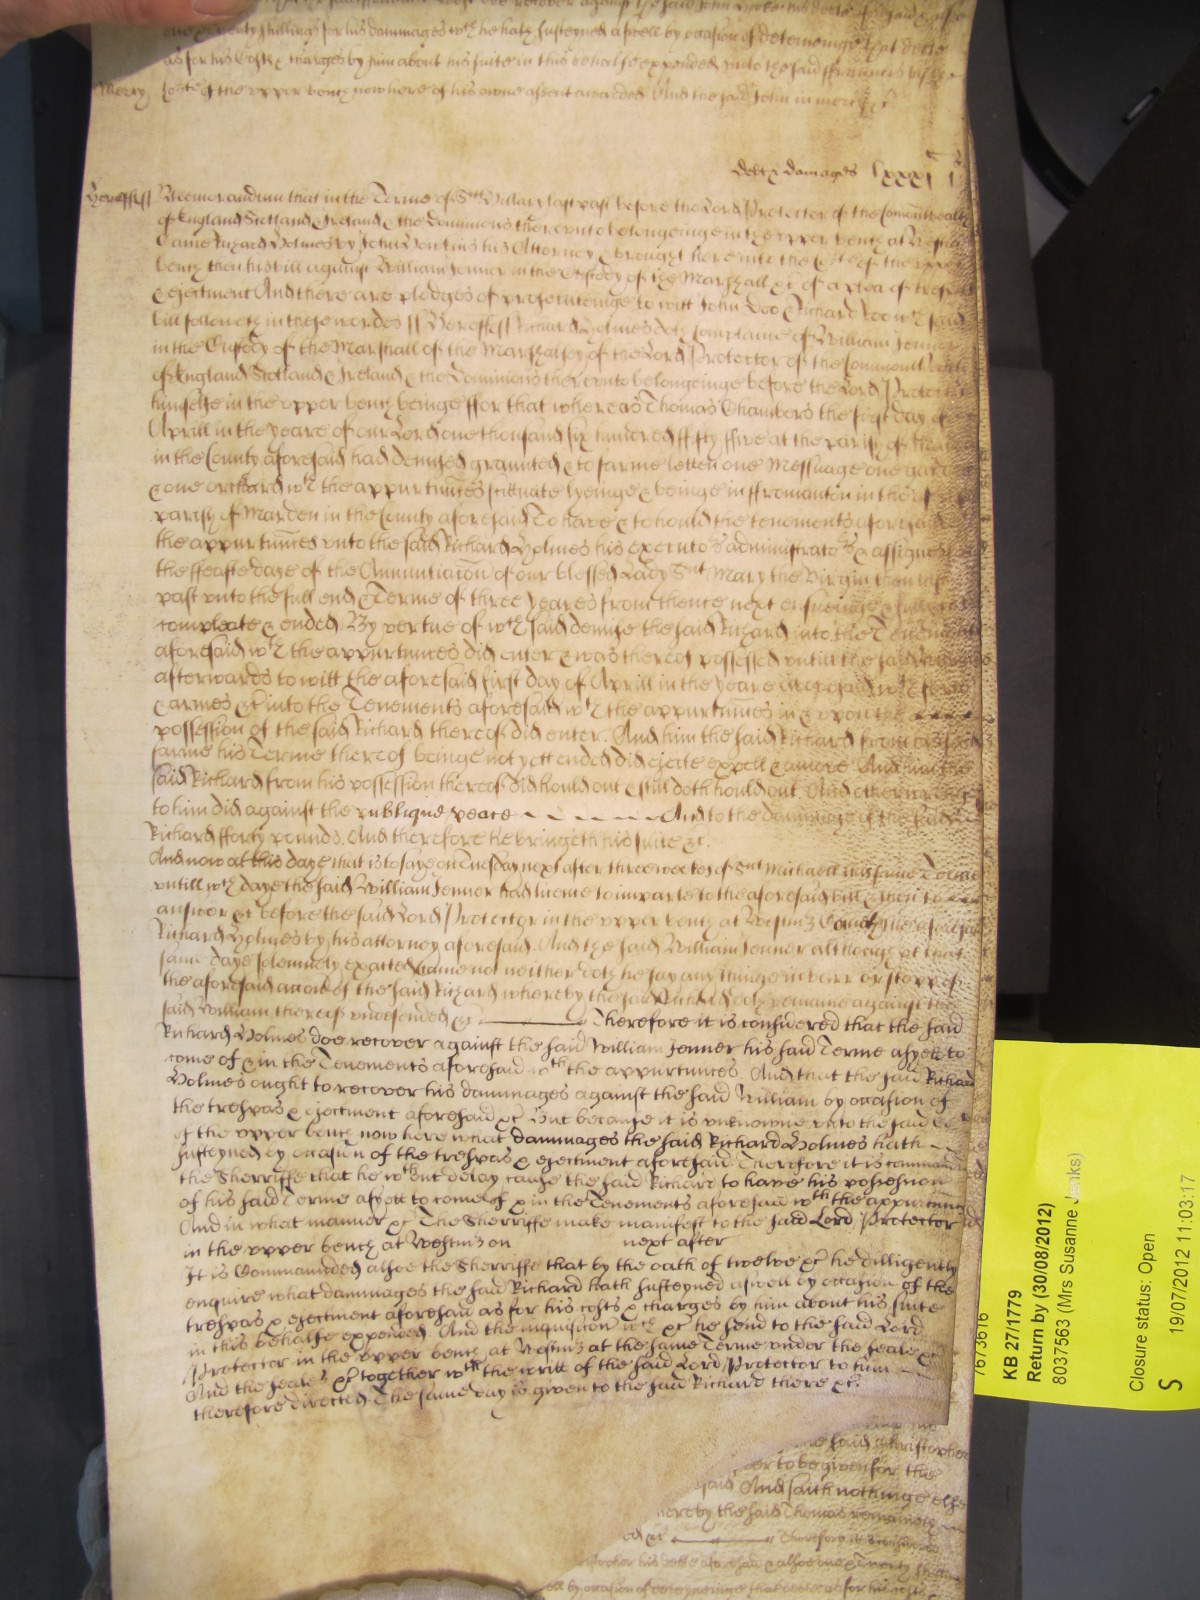 one & twenty shillings for his dammages wch he hath susteyned aswell by occasion of deteineinge that debte
as for his Costs & charges by him about his suite in this behalfe expended unto the said
Mercy Corte of the upper bench now here of his owne assent awarded. And the said John in mercy &c
debt & damages lxxxj l
Hereff ss Memorandum that in the Terme of St Hilary last past before the Lord Protector of the Comonwealth
of England Scotland & Ireland & the dominions thereunto belongeinge in the upper bench at Westm
Came Richard Holmes by John his Attorney & brought here into the Corte of the upper
bench then his bill against William Jenner in the Custody of the Marshall &c of a plea of trespas
& ejectment And there are pledges of prosecuteinge to witt John Doo & Richard Roo wch said
bill followeth in these wordes ss Hereff ss Richard Holmes doth Complaine of William Jenner
in the Custody of the Marshall of the Marshalsey of the Lord Protector of the Commonwealth
of England Scotland & Ireland & the Dominions thereunto belongeinge before the Lord Protector
himselfe in the upper bench beinge ffor that whereas Thomas Chambers the first day of
Aprill in the yeare of our Lord one thousand six hundred fifty ffive at the parish of Marden
in the County aforesaid had demised graunted & to farme letten one Messuage one garden
& one orchard wth the appurtunces scituate lyeinge & beinge in ffromanton in the
parish of Marden in the County aforesaid To have & to hould the tenements aforesaid
the appurtunces unto the said Richard Holmes his executors administrators & assignes from
the ffeaste daye of the Annuntiacion of our blessed Lady St Mary the Virgin then last
past unto the full end & Terme of three yeares from thence next ensueinge & fully to be
compleate & ended. By vertue of wch said demise the said Richard into the Tenements
aforesaid wth the appurtunces did enter & was thereof possessed untill the said William
afterwards to witt the aforesaid first day of Aprill in the yeare aforesaid wth force
& armes &c into the Tenements aforesaid wth the appurtunces in & upon the
possession of the said Richard thereof did enter. And him the said Richard from his said
farme his Terme thereof beinge not yett ended did ejecte expell & amove And him the
said Richard from his possession thereof did hould out & still doth hould out. And other wronges
to him did against the publique peace And to the dammage of the said
Richard fforty pounds. And therefore he bringeth his suite &c.
And now at this daye that is to saye on Tuesday next after three weekes of St Michaell in this same Terme
untill wch daye the said William Jenner had licence to imparle to the aforesaid bill & then to
answer &c before the said Lord Protector in the upper bench at Westmr Came the aforesaid
Richard Holmes by his attorney aforesaid. And the said William Jenner although at that
same daye solemnely exacted came not neither doth he say any thinge in barr or stopp of
the aforesaid accion of the said Richard whereby the said Richard doth remaine against the
said William thereof undefended &c Therefore it is considered that the said
Richard Holmes doe recover against the said William Jenner his said Terme as yett to
come of & in the Tenements aforesaid wth the appurtunces. And that the said Richard
Holmes ought to recover his dammages against the said William by occasion of
the trespas & ejectment aforesaid &c But because it is unknowne unto the said Corte
of the upper bench now here what dammages the said Richard Holmes hath
susteyned by occasion of the trespas & ejectment aforesaid Therefore it is commanded
the Sherriffe that he wthout delay cause the said Richard to have his possession
of his said Terme as yett to come of & in the Tenements aforesaid wth the appurtunces
And in what manner &c The Sherriffe make manifest to the said Lord Protector
in the upper bench at Westmr on next after
It is Commanded alsoe the Sherriffe that by the oath of twelve &c he dilligently
enquire what dammages the said Richard hath susteyned aswell by occasion of the
trespas & ejectment aforesaid as for his costs & charges by him about his suite
in this behalfe expended. And the inquisicion wch &c he send to the said Lord
Protector in the upper bench at Westmr at the same Terme under the seale &c
And the seales &c together wth the writt of the said Lord Protector to him
therefore directed. The same day is given to the said Richard there &c.
the said Christopher
to be given for the
said And saith nothinge else
whereby the said Thomas remaineth
&c Therefore it is considered
Christopher his debte aforesaid & alsoe one & Twenty
by occasion of deteyneinge that debte as for his costs
7673616
KB 27/1779
Return by (30/08/2012)
8037563 (Mrs Susanne Jenks)
Closure status: Open
S 19/07/2012 11:03:17